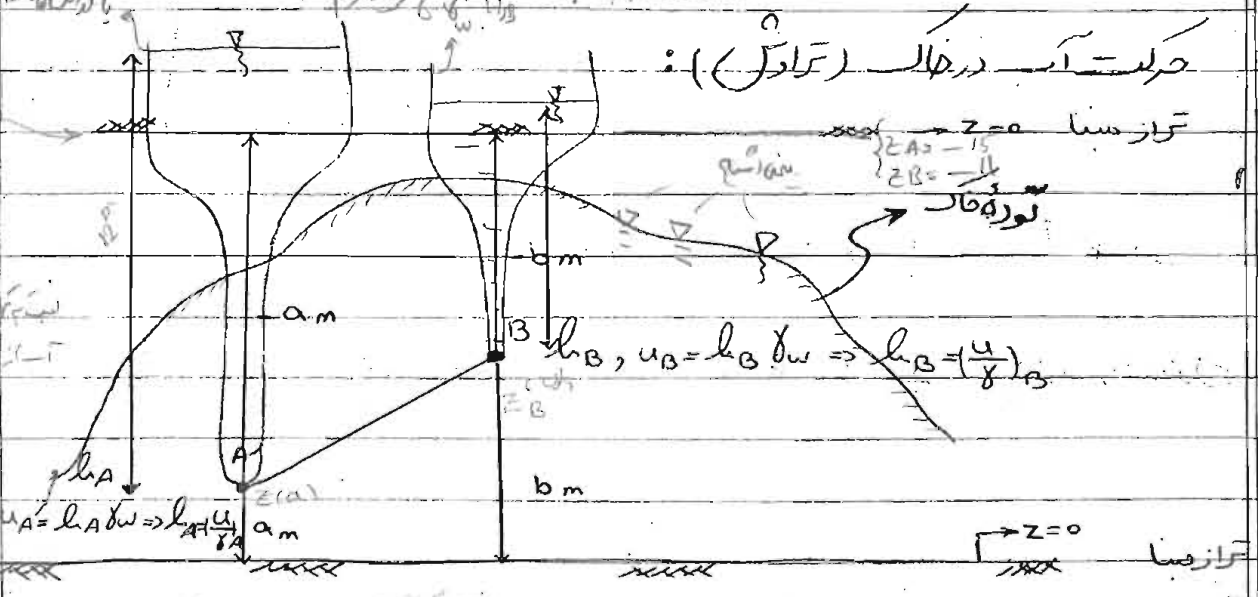 حرکت آب در خاک (تراوش):
تراز مبنا z=0
zA = -15
zB = -11
توده خاک
-b m
-a m
B
hB, uB = hB γw => hB = (u/γ)B
zB
A
z(a)
hA
b m
uA = hA γw => hA = (u/γ)A
a m
z=0
تراز مبنا